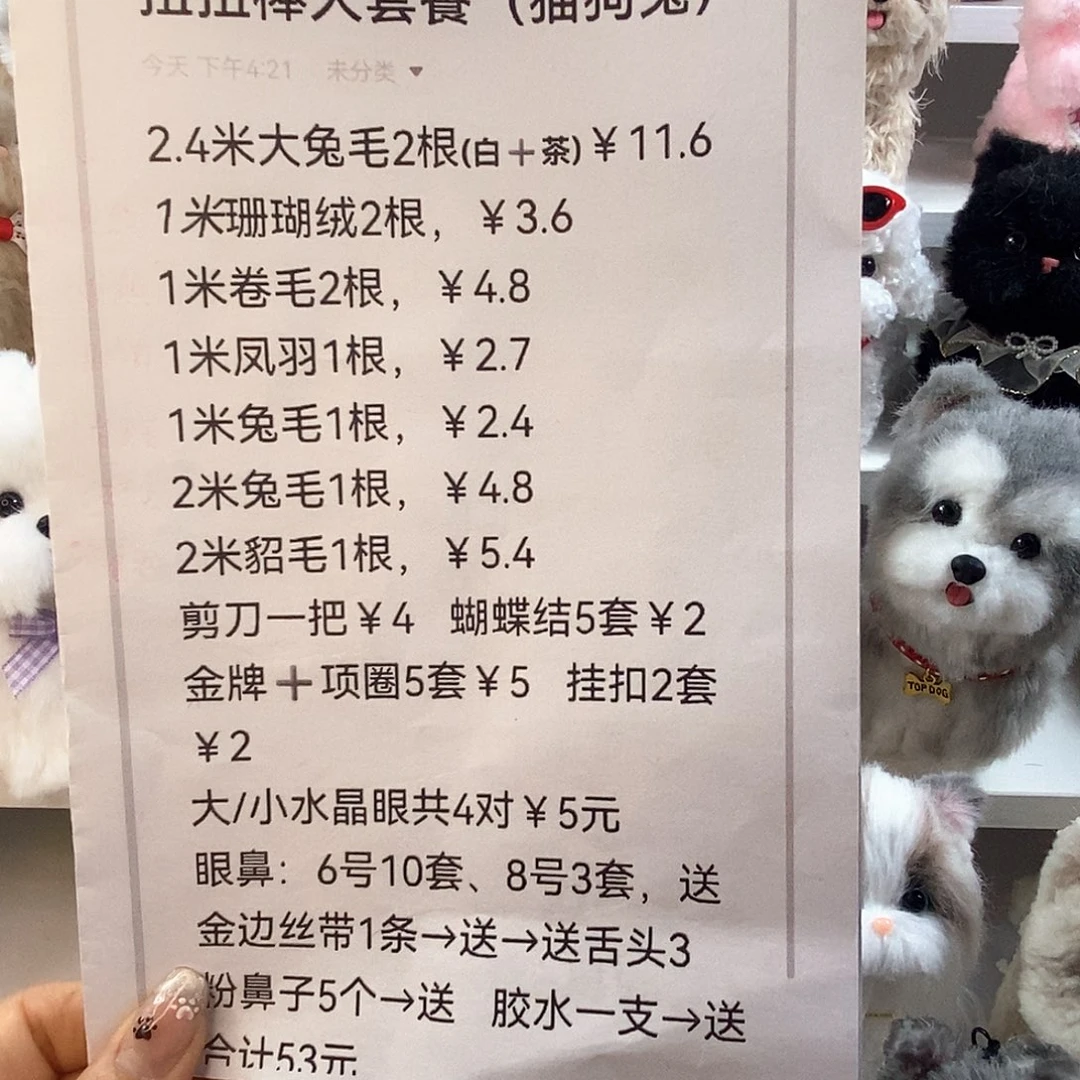 扭扭棒大套餐（猫狗兔）
今天 下午4:21 未分类
2.4米大兔毛2根(白＋茶)￥11.6
1米珊瑚绒2根，￥3.6
1米卷毛2根，￥4.8
1米凤羽1根，￥2.7
1米兔毛1根，￥2.4
2米兔毛1根，￥4.8
2米貂毛1根，￥5.4
剪刀一把￥4 蝴蝶结5套￥2
金牌＋项圈5套￥5 挂扣2套
￥2
大/小水晶眼共4对￥5元
眼鼻：6号10套、8号3套，送
金边丝带1条→送→送舌头3
粉鼻子5个→送 胶水一支→送
合计53元
TOP DOG